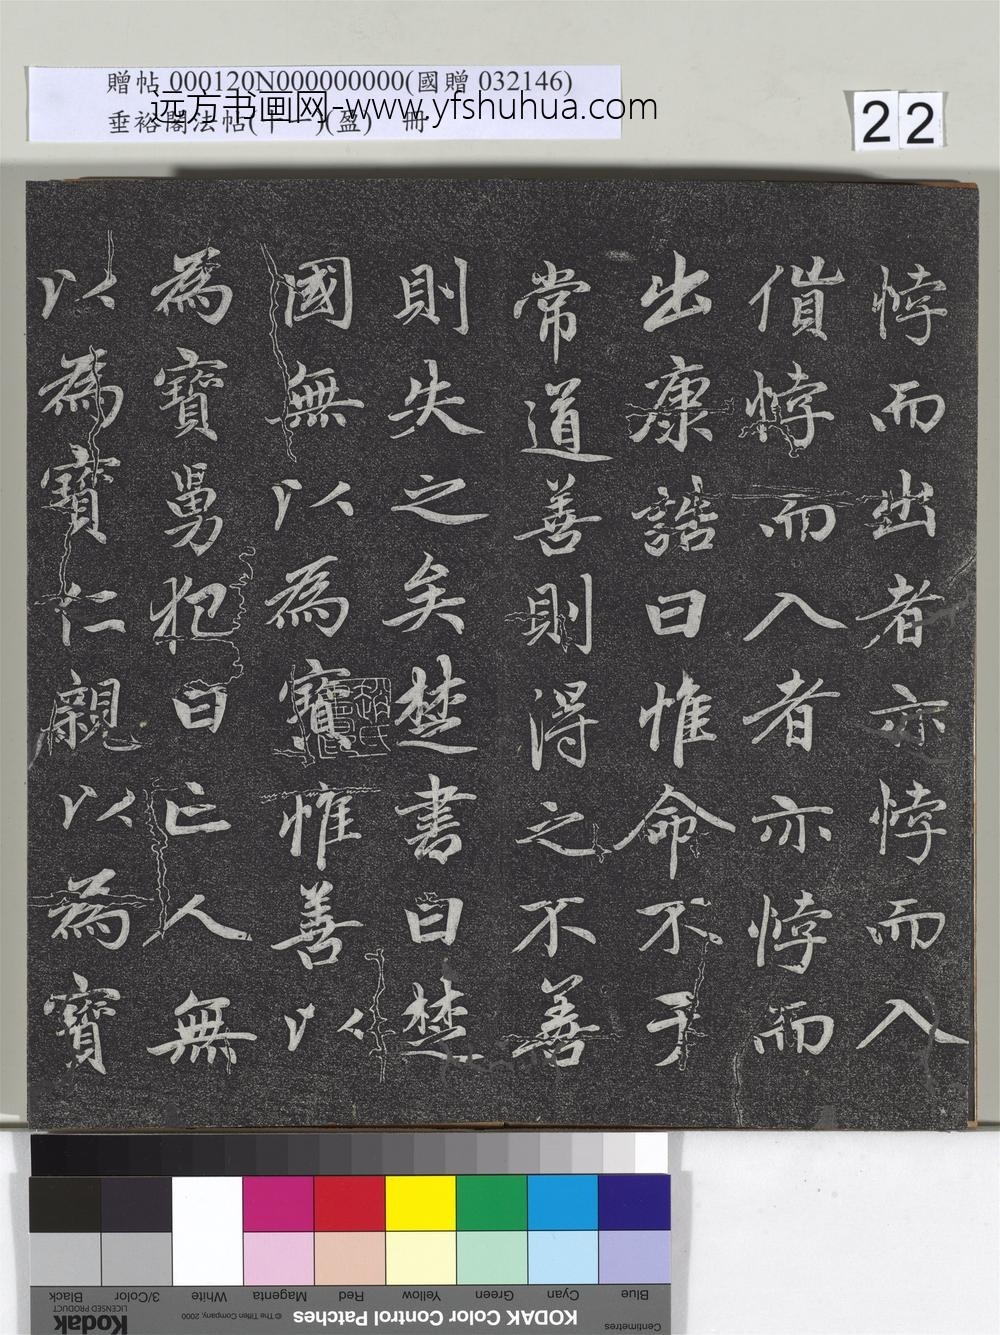 贈帖 000120N000000000(國贈 032146)
远方书画网-www.yfshuhua.com
垂裕閣法帖(十一)(盈) 冊
22
悖而出者亦悖而入
偩悖而入者亦悖而
出康誥曰惟命不于
常道善則得之不善
則失之矣楚書曰楚
國無以為寶惟善以
為寶舅犯曰亡人無
以為寶仁親以為寶
Blue
Cyan
Green
Yellow
Red
Magenta
White
3/Color
Black
Centimetres
KODAK Color Control Patches
© The Tiffen Company, 2000
Kodak
LICENSED PRODUCT